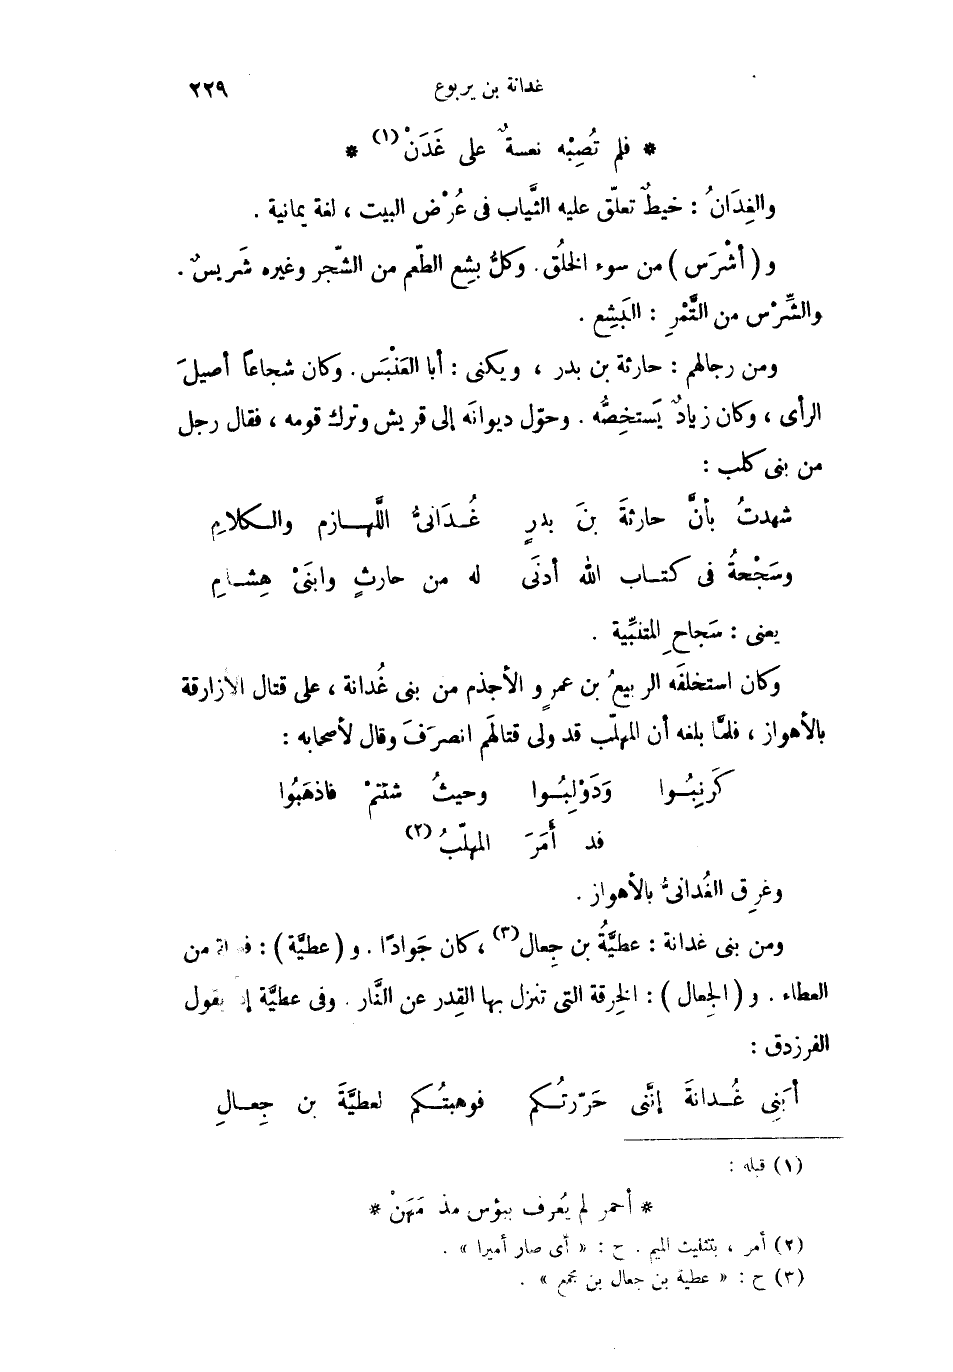 غدانة بن يربوع ٢٢٩
* فلم تُصِبْه نعسةٌ على غَدَنْ(١) *
والغِدَانُ : خيطٌ تعلّق عليه الثَّياب فى عُرْض البيت ، لغة يمانية .
و ( أشْرَس ) من سوء الخلُق . وكلُّ بشِع الطّعم من الشّجر وغيره شَريسٌ .
والشِّرْس من التَّمْرِ : البَشِع .
ومن رجالهم : حارثة بن بدر ، ويكنى : أبا العَنْبَس . وكان شجاعاً أصيلَ
الرأى ، وكان زيادٌ يَستخِصُّه . وحوّل ديوانَه إلى قريش وترك قومه ، فقال رجل
من بنى كلب :
شهدتُ بأنَّ حارثةَ بنَ بدرٍ غُدَانىُّ اللَّهازم والكلامِ
وسَجْحةُ فى كتاب الله أدنَى له من حارثٍ وابنَىْ هِشامِ
يعنى : سَجاحِ المتنبِّية .
وكان استخلفَه الربيعُ بن عمرٍو الأجذم من بنى غُدانة ، على قتال الأزارقة
بالأهواز ، فلمَّا بلغه أن المهلّب قد ولى قتالَهم انصرَفَ وقال لأصحابه :
كَرنِبُوا وَدَوْلِبُوا وحيثُ شئتمْ فاذهَبُوا
قد أَمَرَ المهلّبُ(٢)
وغرِق الغُدانىُّ بالأهواز .
ومن بنى غدانة : عطيَّةُ بن جِعال(٣) ، كان جَوادًا . و ( عطيَّة ) : فعيلة من
العطاء . و ( الجِعال ) : الخِرقة التى تنزل بها القِدر عن النَّار . وفى عطيَّة إذ يقول
الفرزدق :
أبَنِى غُدانةَ إنَّنى حَرّرتُكم فوهبتُكم لعطيَّةَ بن جِعالِ
(١) قبله :
* أحمر لم يُعرف ببؤس مذ مَهَنْ *
(٢) أمر ، بتثليث الميم . ح : « أى صار أميرا » .
(٣) ح : « عطية بن جعال بن مجمع » .